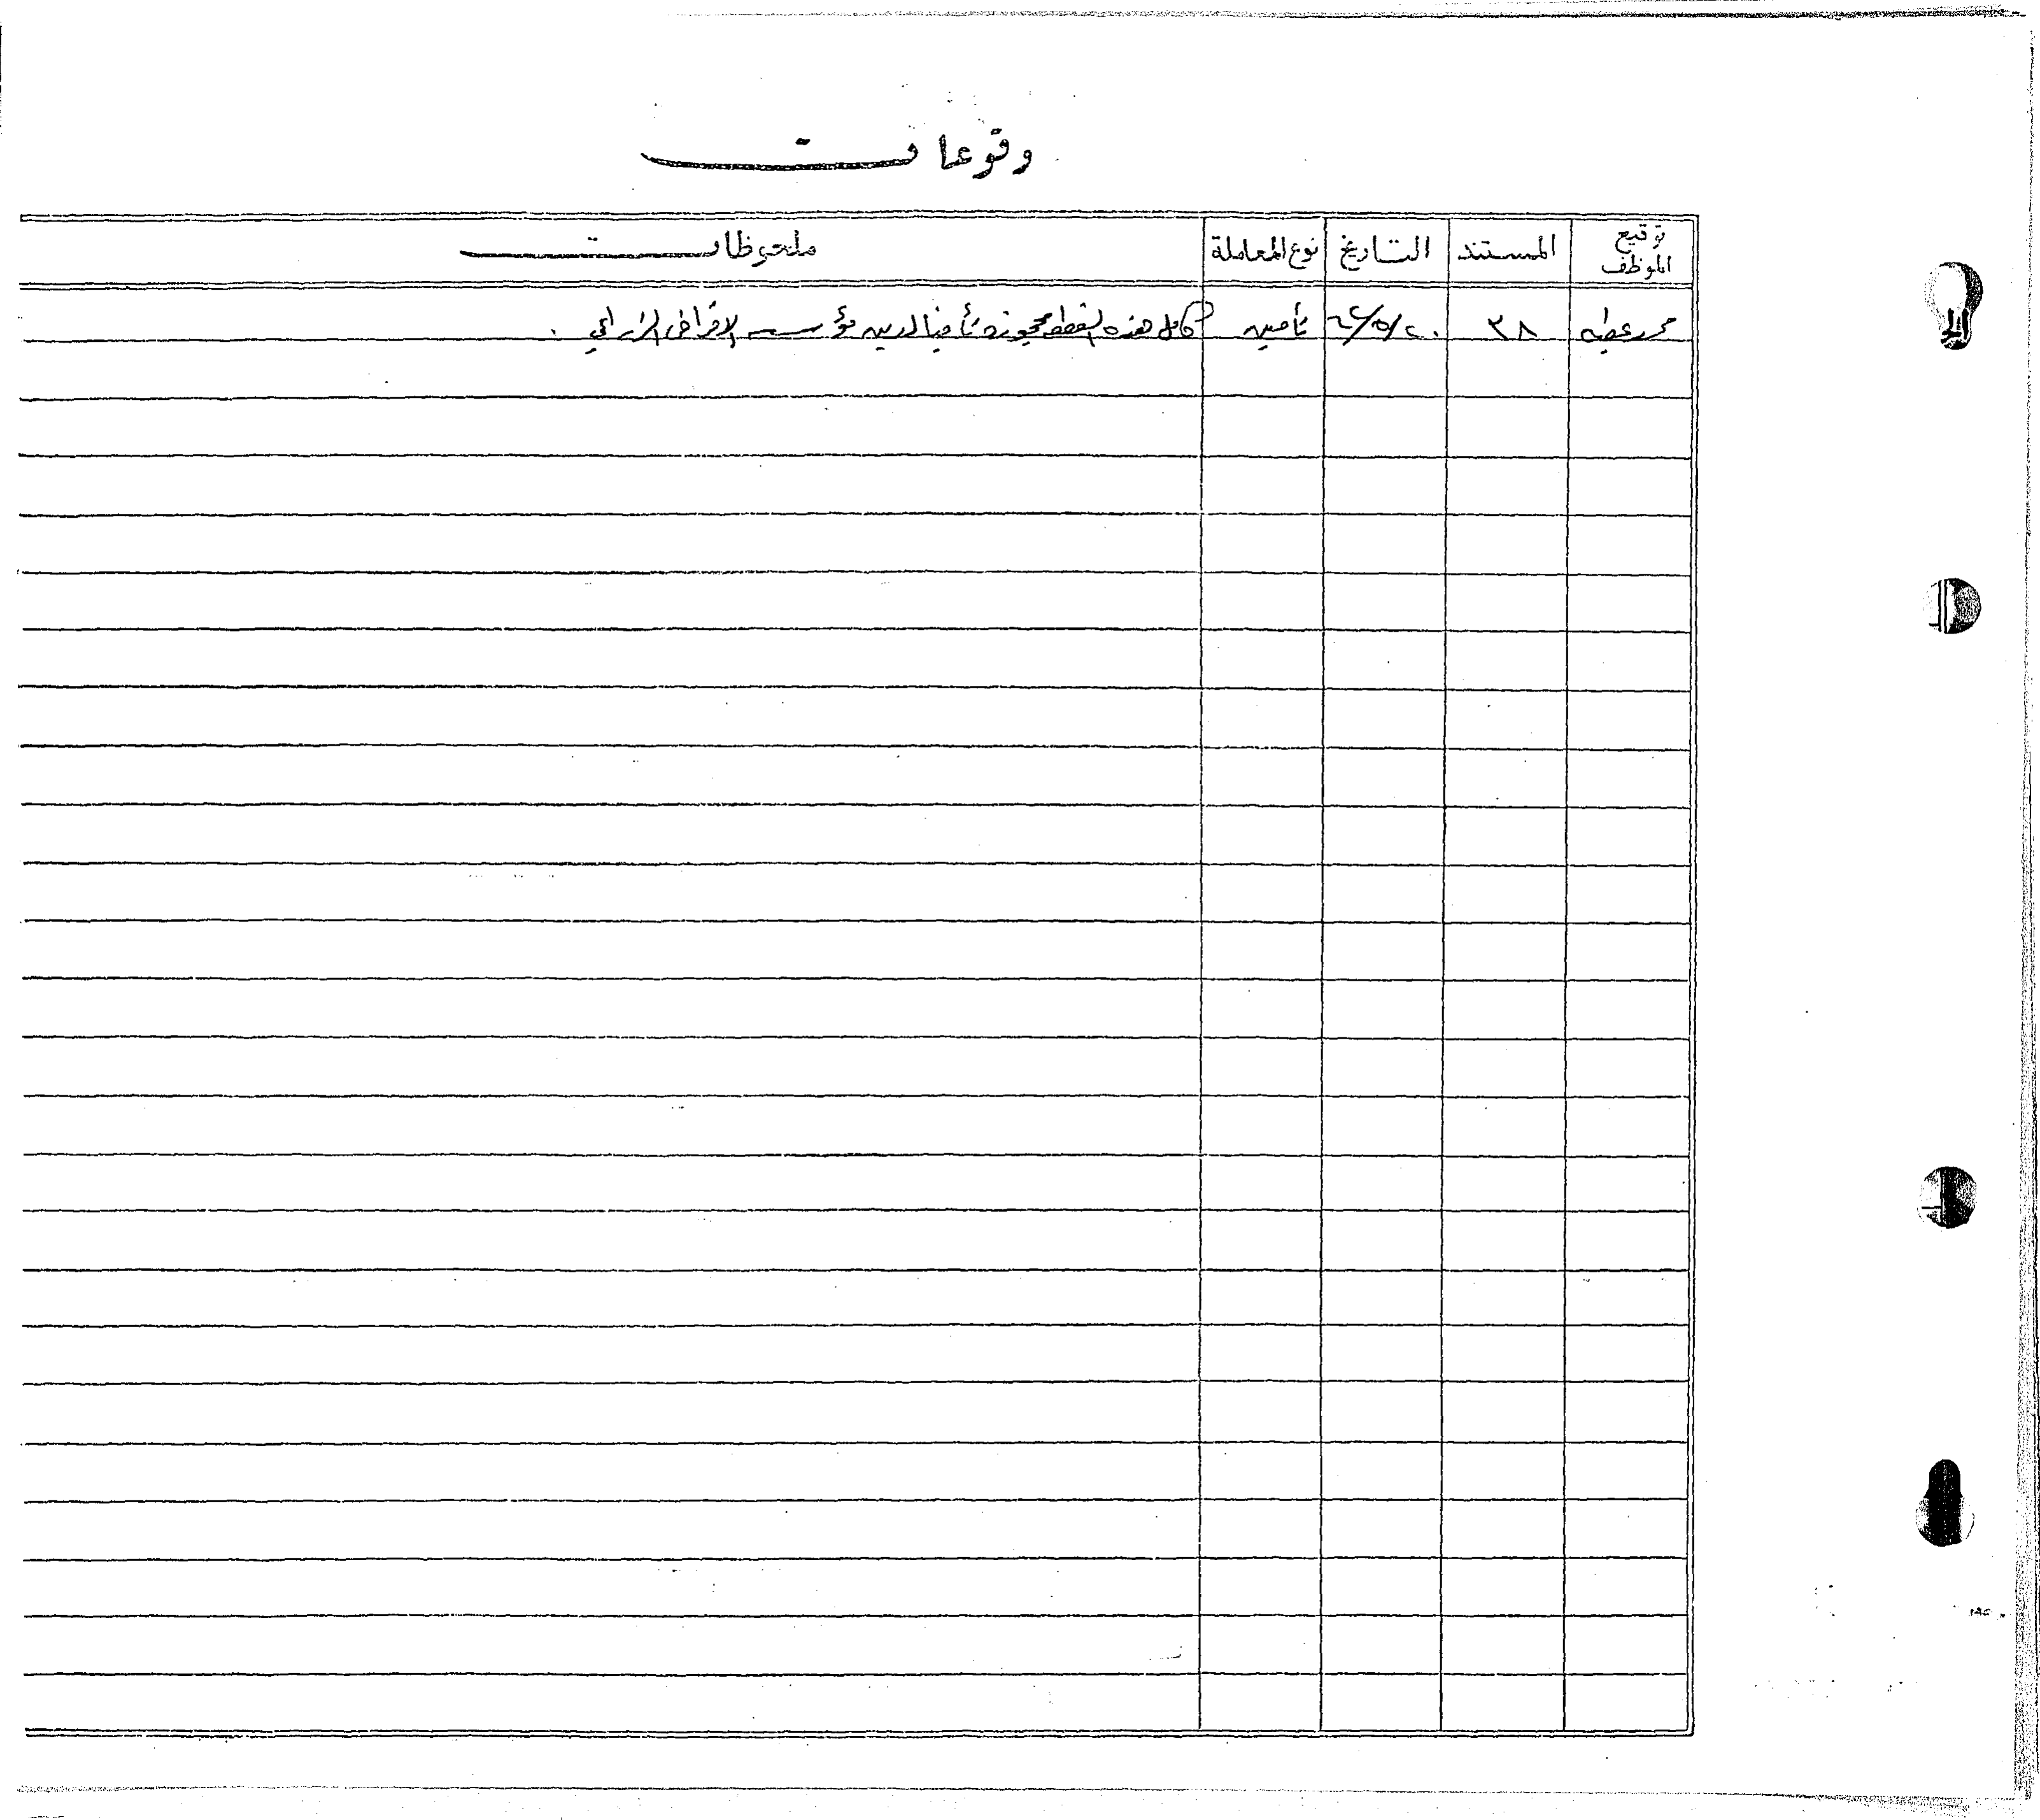 وقوعات
توقيع الموظف المستند التاريخ نوع المعاملة ملحوظات
محمد عطيه ٣٨ ٦٤/٥/٢٠ تأمين كامل هذه القطعه محجوزه تأمينا لدين مؤسسه الاقراض الزراعي .